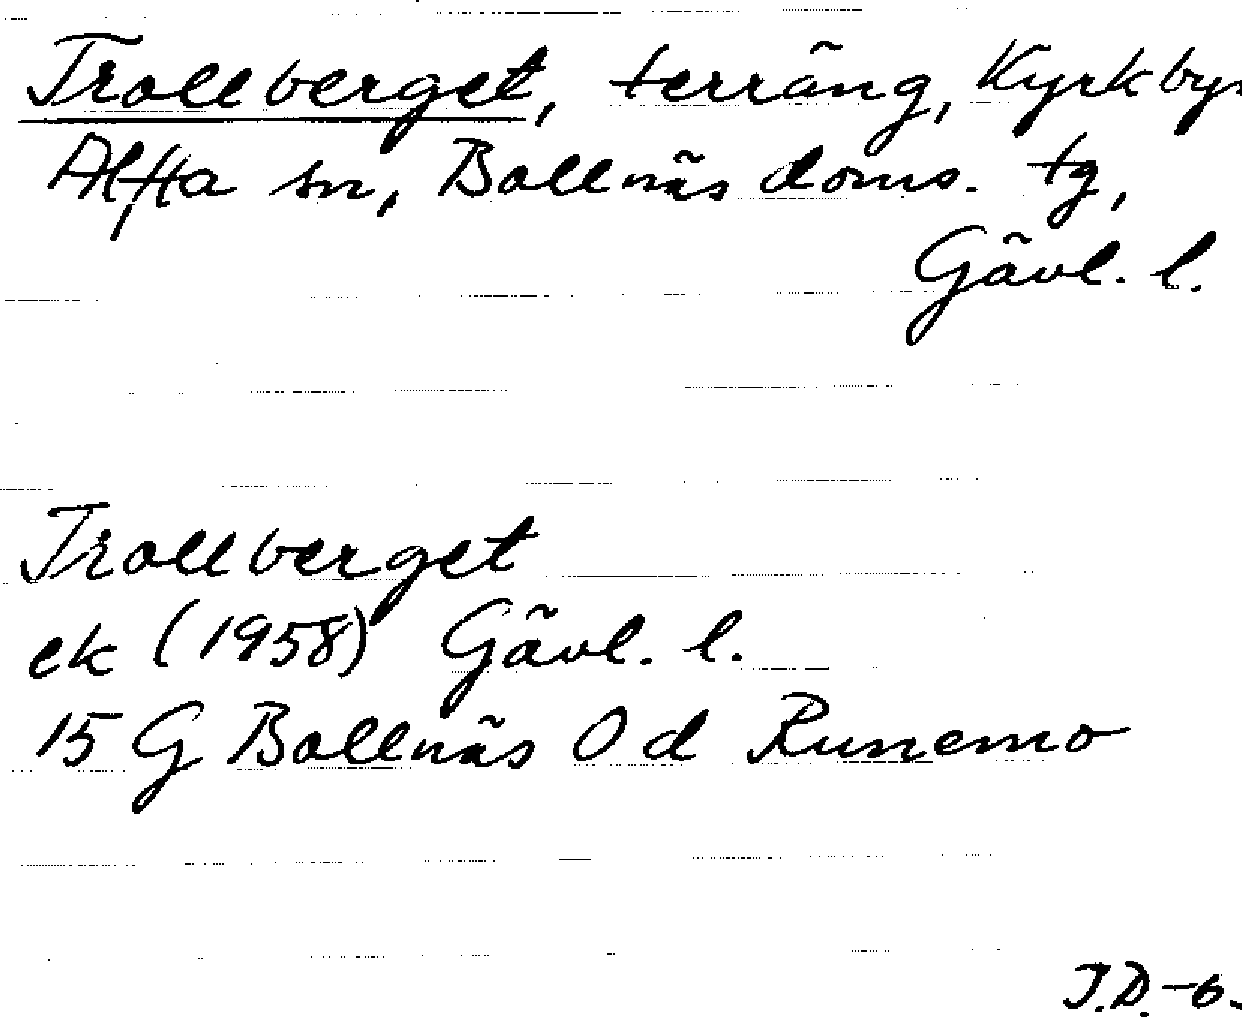 Trollberget, terräng, Kyrkby
Alfta sn, Bollnäs doms. tg,
Gävl. l.
Trollberget
ek (1958) Gävl. l.
15 G Bollnäs 0 d Runemo